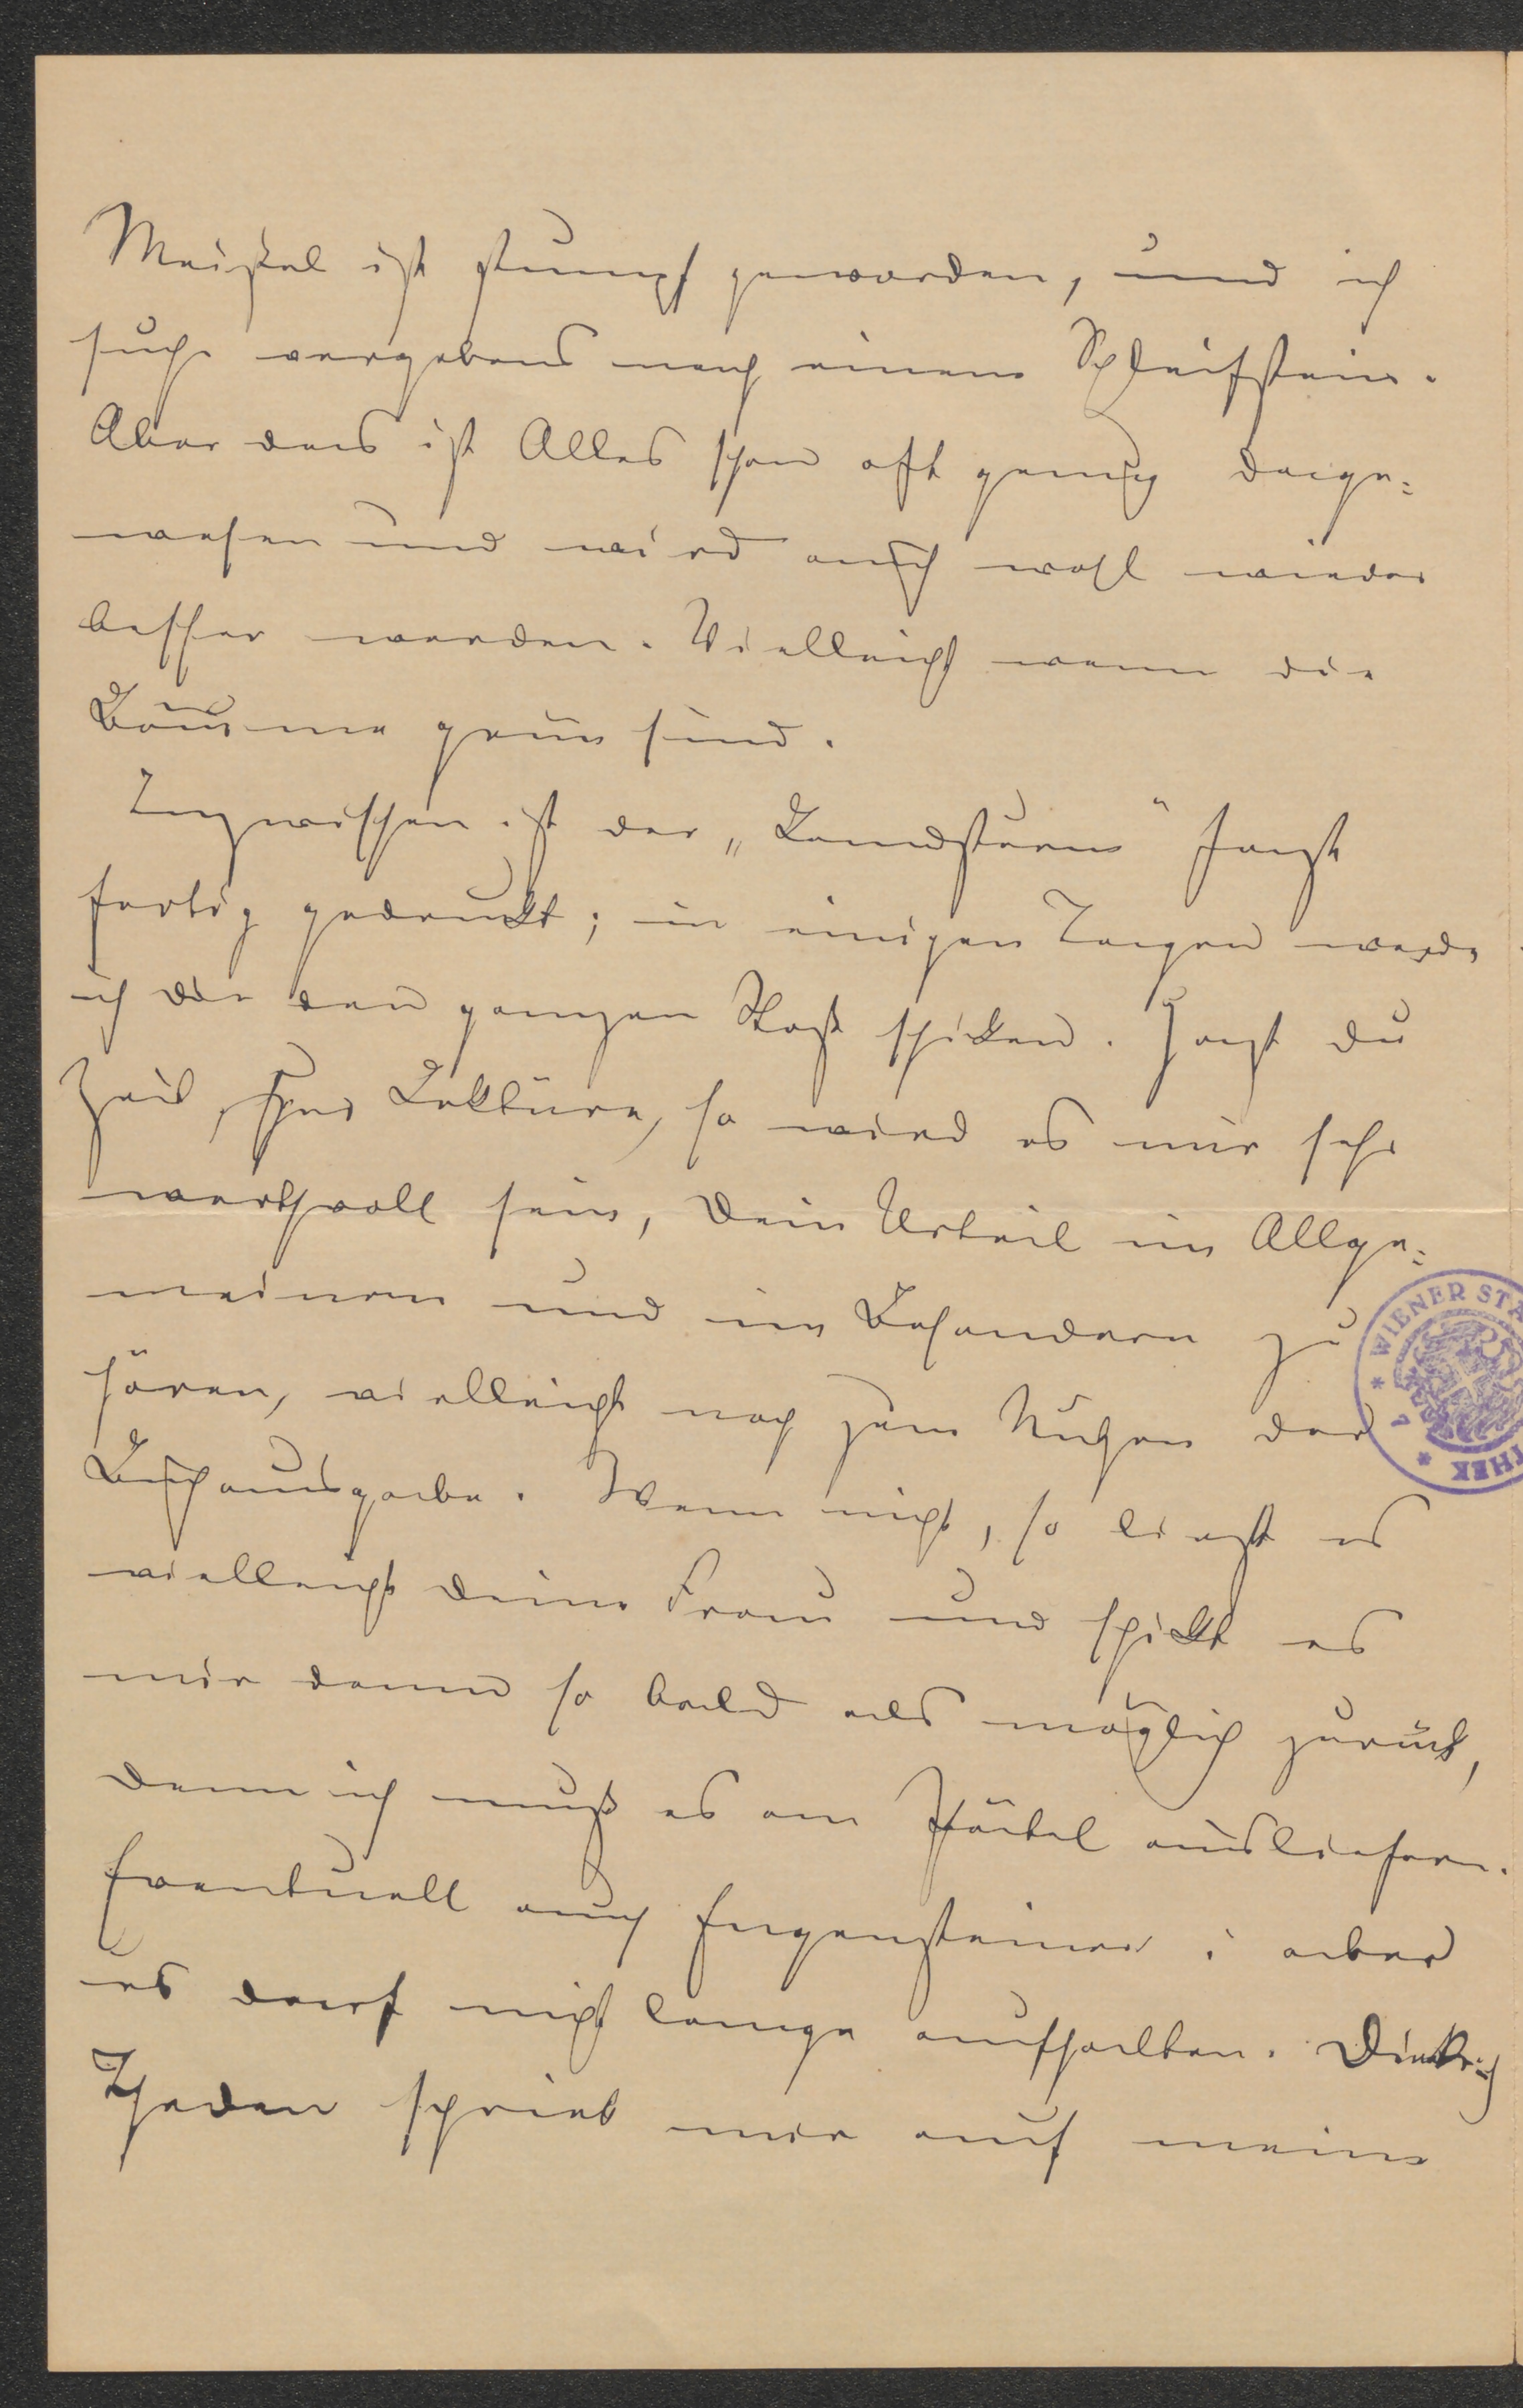 Meißel ist stumpf geworden, und ich
suche vergebens nach einem Schleifstein.
Aber das ist Alles schon oft genug dage=
wesen und wird auch wohl wieder
besser werden. Vielleicht wenn die
Bäume grün sind.
Inzwischen ist der „Landsturm" fast
fertig gedruckt; in einigen Tagen werde
ich Dir den ganzen Stoß schicken. Hast Du
Zeit zur Lektüre, so wird es mir sehr
werthvoll sein, Dein Urteil im Allge=
meinen und im Besondern zu
hören, vielleicht noch zum Nutzen der
Buchausgabe. Wenn nicht, so liest es
vielleicht Deine Frau und schickt es
mir dann so bald als möglich zurück,
denn ich muß es an Pätel ausliefern.
Eventuell auch Engensteiner; aber
es darf nicht lange aufhalten. Dietrich
Theden schrieb mir auf meine
WIENER STA
THEK